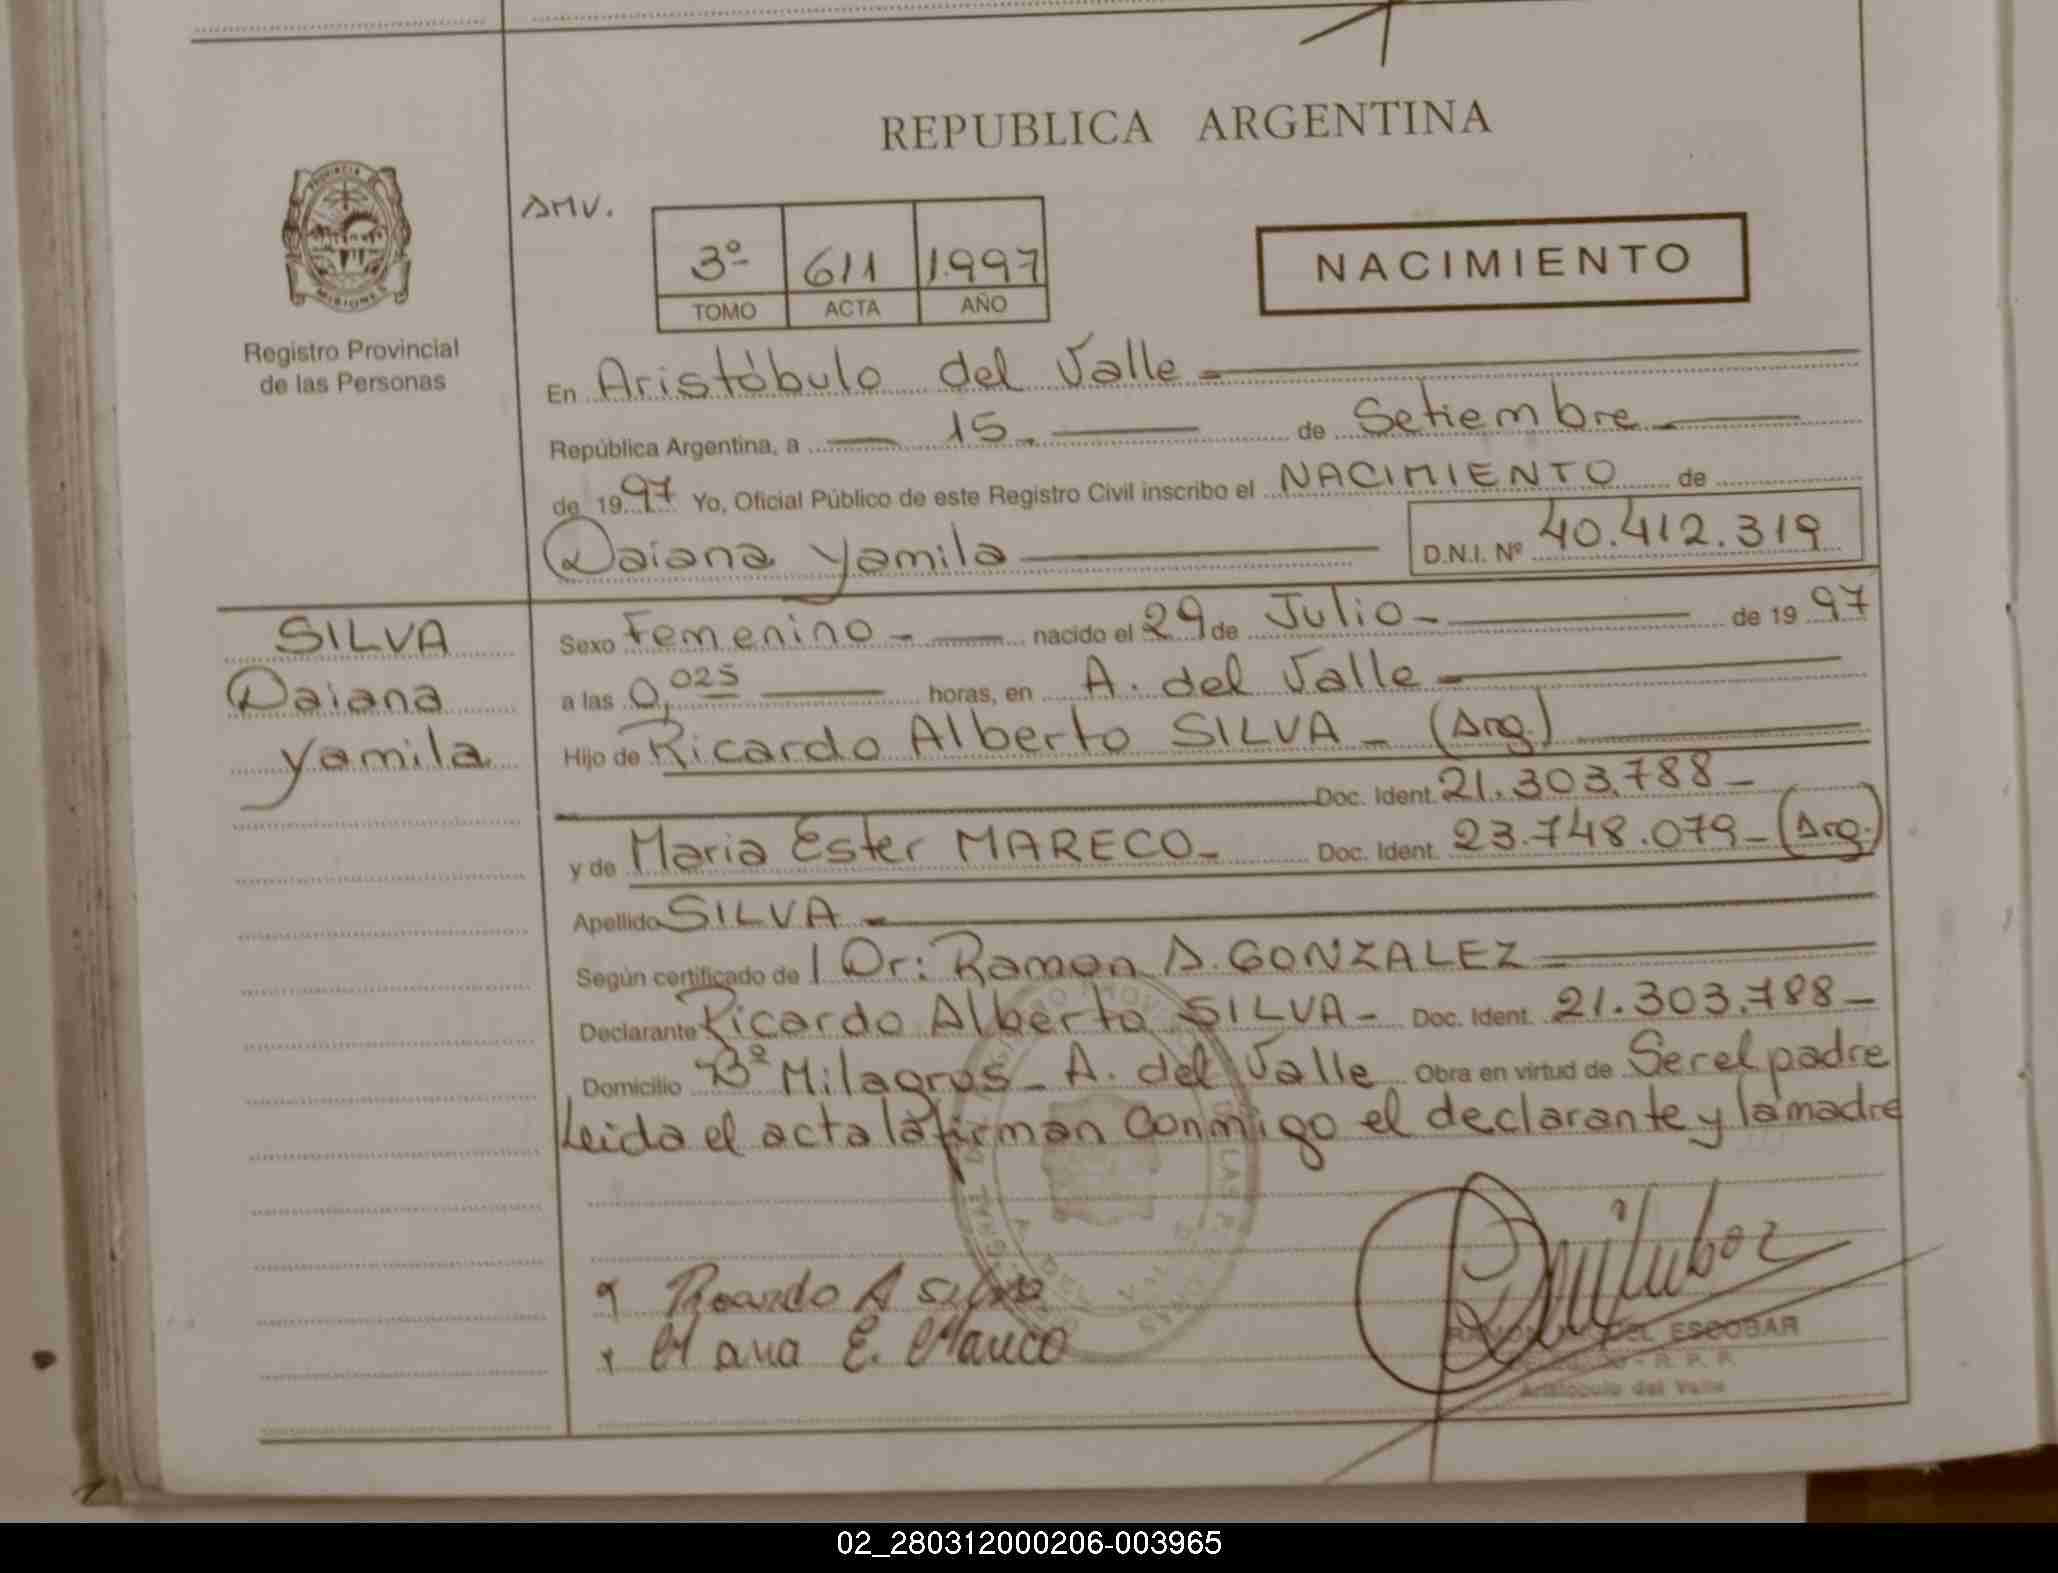 REPUBLICA ARGENTINA
PROVINCIA
MISIONES
Registro Provincial
de las Personas
AMV.
3º 611 1.997
TOMO ACTA AÑO
NACIMIENTO
En Aristóbulo del Valle -
República Argentina, a — 15. — de Setiembre -
de 1997 Yo, Oficial Público de este Registro Civil inscribo el NACIMIENTO de
Daiana Yamila
D.N.I. Nº 40.412.319
SILVA
Daiana
Yamila
Sexo Femenino - nacido el 29 de Julio - de 1997
a las 0,025 horas, en A. del Valle -
Hijo de Ricardo Alberto SILVA - (Arg.)
Doc. Ident. 21.303.788 -
y de Maria Ester MARECO - Doc. Ident. 23.748.079 - (Arg.)
Apellido SILVA -
Según certificado de / Dr: Ramon A. GONZALEZ
Declarante Ricardo Alberto SILVA - Doc. Ident. 21.303.788 -
Domicilio Bº Milagros - A. del Valle Obra en virtud de Ser el padre
Leida el acta la firman conmigo el declarante y la madre
Ricardo A Silva
Maria E. Mareco
ESCOBAR
R. P. P.
Aristobulo del Valle
02_280312000206-003965